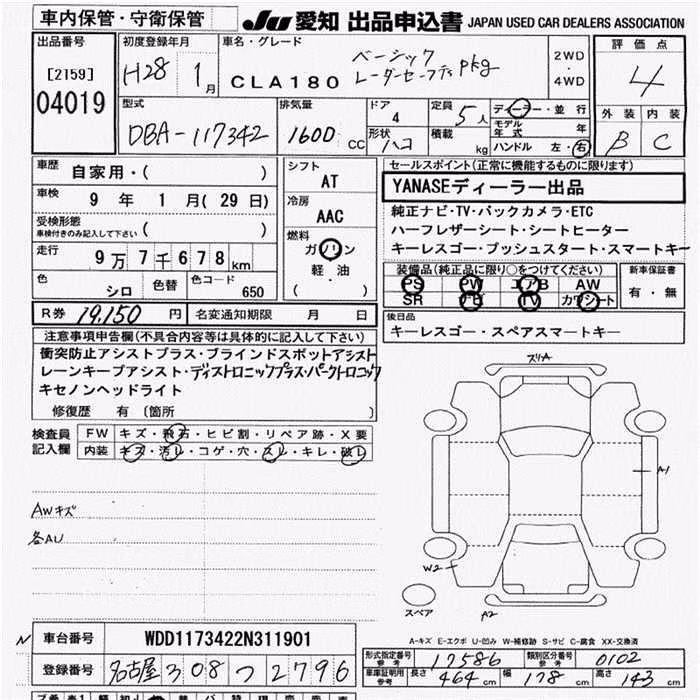 車内保管・守衛保管
JU 愛知 出品申込書 JAPAN USED CAR DEALERS ASSOCIATION
出品番号
[2159]
04019
初度登録年月
H28 1月
車名・グレード
CLA180
ベーシック
レーダーセーフティpkg
2WD
・
4WD
評価点
4
外装 内装
B C
型式
DBA-117342
排気量
1600 CC
ドア
4
形状
ハコ
定員
5人
積載
kg
ディーラー・並行
モデル年式 年
ハンドル 左・右
車歴
自家用・( )
車検
9年 1月(29日)
受検形態
車検付きのみ記入して下さい ( )
走行
9万7千678km
色
シロ
色替
色コード
650
シフト
AT
冷房
AAC
燃料
ガソリン
軽・油
( )
セールスポイント(正常に機能するものに限ります)
YANASEディーラー出品
純正ナビ・TV・バックカメラ・ETC
ハーフレザーシート・シートヒーター
キーレスゴー・プッシュスタート・スマートキー
装備品(純正品に限り○をつけてください)
PS PW エアB AW
SR ナビ TV カワシート
新車保証書
有・無
R券 19,150円 名変通知期限 月 日
後日品
キーレスゴー・スペアスマートキー
注意事項申告欄(不具合内容等は具体的に記入して下さい)
衝突防止アシストプラス・ブラインドスポットアシスト
レーンキープアシスト・ディストロニックプラス・パークトロニック
キセノンヘッドライト
修復歴 有〔箇所 〕
検査員
記入欄
FW キズ・飛石・ヒビ割・リペア跡・X要
内装 キズ・汚レ・コゲ・穴・スレ・キレ・破レ
AWキズ
各AU
スリA
A1
W2
スペア
A2
A-キズ E-エクボ U-凹み W-補修跡 S-サビ C-腐食 XX-交換済
N
車台番号 WDD1173422N311901
登録番号 名古屋 308 つ 2796
形式指定番号
参考
17586
類別区分番号
参考
0102
車庫証明用
参考
長さ 464cm 幅 178cm 高さ 143cm